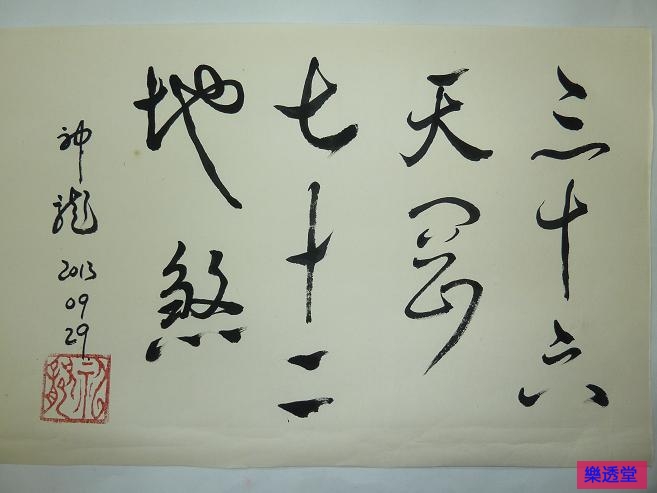 三十六
天罡
七十二
地煞
神龍
2013
09
29
神龍
樂透堂